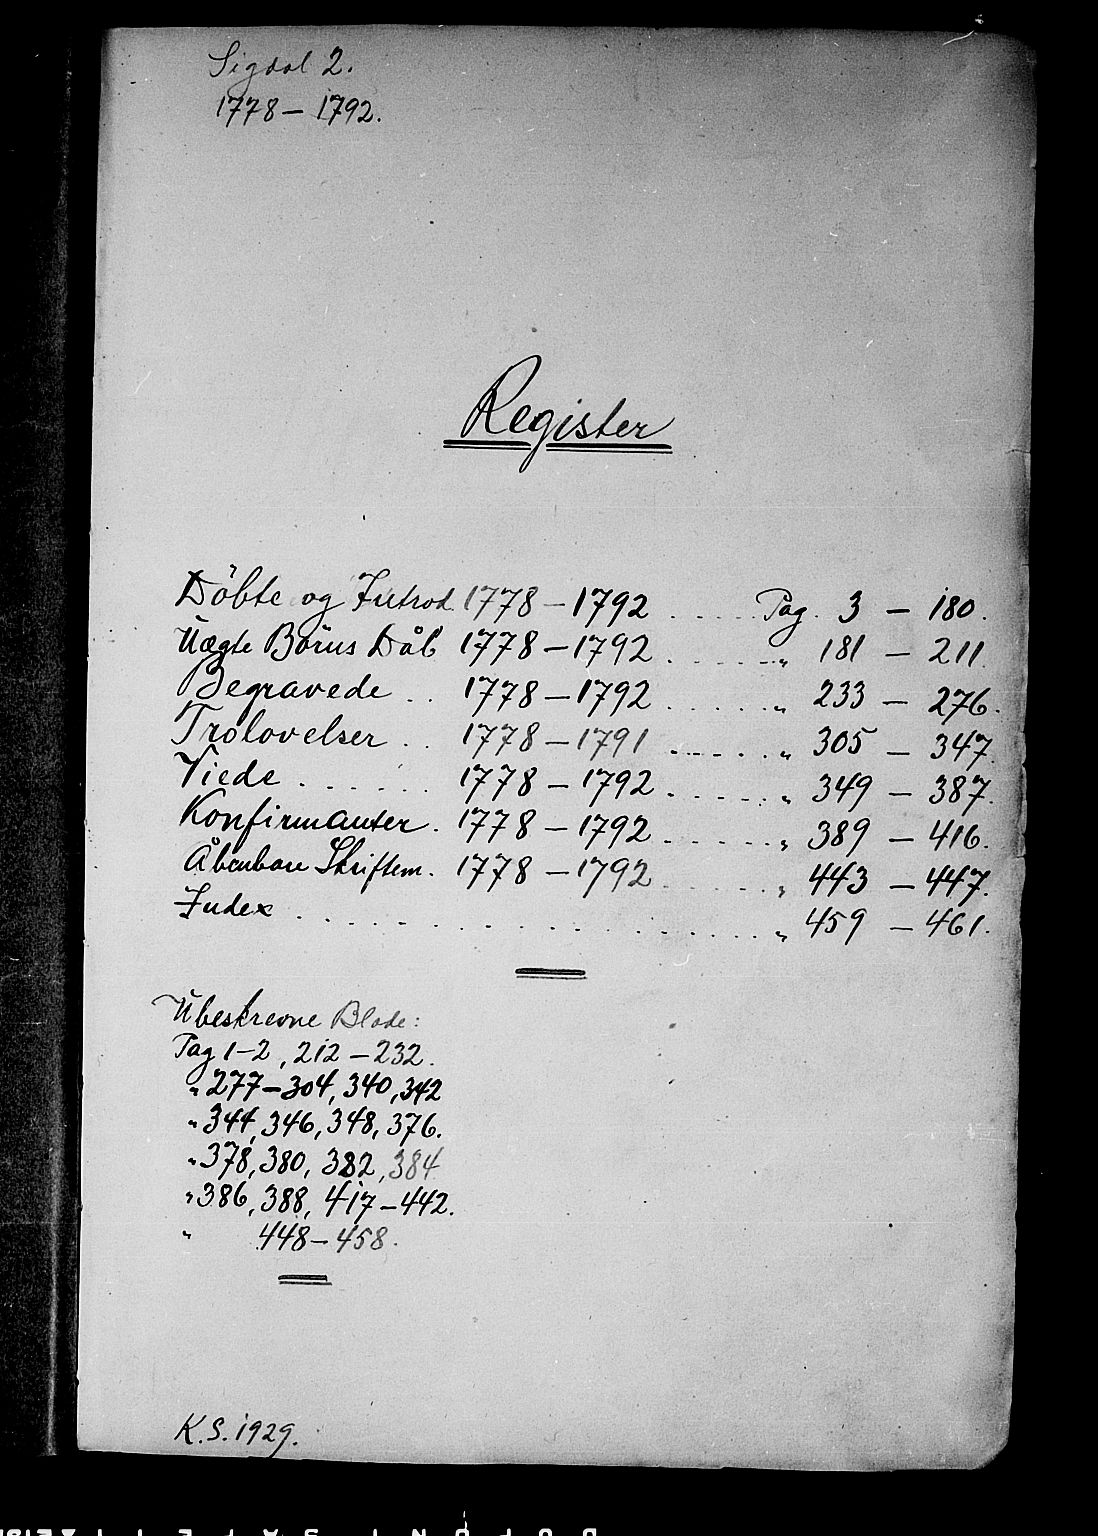 Sigdal 2.
1778 – 1792.
Register
Döbte og Introd. 1778 – 1792 ..... Pag. 3 – 180.
Uægte Börns Dåb 1778 – 1792 ...... „ 181 – 211.
Begravede .. 1778 – 1792 ...... „ 233 – 276.
Trolovelser .. 1778 – 1791 ...... „ 305 – 347.
Viede ...... 1778 – 1792 ...... „ 349 – 387.
Konfirmanter. 1778 – 1792 ...... „ 389 – 416.
Åbenbare Skriftem. 1778 – 1792 ...... „ 443 – 447.
Index ............ „ 459 – 461.
Ubeskrevne Blade:
Pag 1–2, 212 – 232.
„ 277 – 304, 340, 342
„ 344, 346, 348, 376.
„ 378, 380, 382, 384
„ 386, 388, 417 – 442.
„ 448 – 458.
K. S. 1929.